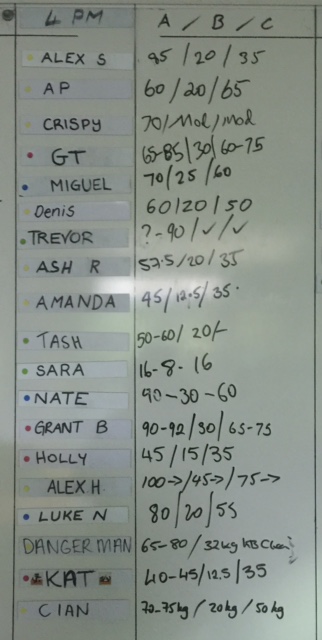 4 PM A / B / C
ALEX S 95 / 20 / 35
AP 60 / 20 / 65
CRISPY 70 / Mod / Mod
GT 65-85 / 30 / 60-75
MIGUEL 70 / 25 / 60
Denis 60 / 20 / 50
TREVOR ?-90 / ✓ / ✓
ASH R 57.5 / 20 / 35
AMANDA 45 / 12.5 / 35
TASH 50-60 / 20 / -
SARA 16-8-16
NATE 90-30-60
GRANT B 90-92 / 30 / 65-75
HOLLY 45 / 15 / 35
ALEX H 100→ / 45→ / 75→
LUKE N 80 / 20 / 55
DANGERMAN 65-80 / 32kg KB
KAT 40-45 / 12.5 / 35
CIAN 70-75kg / 20kg / 50kg